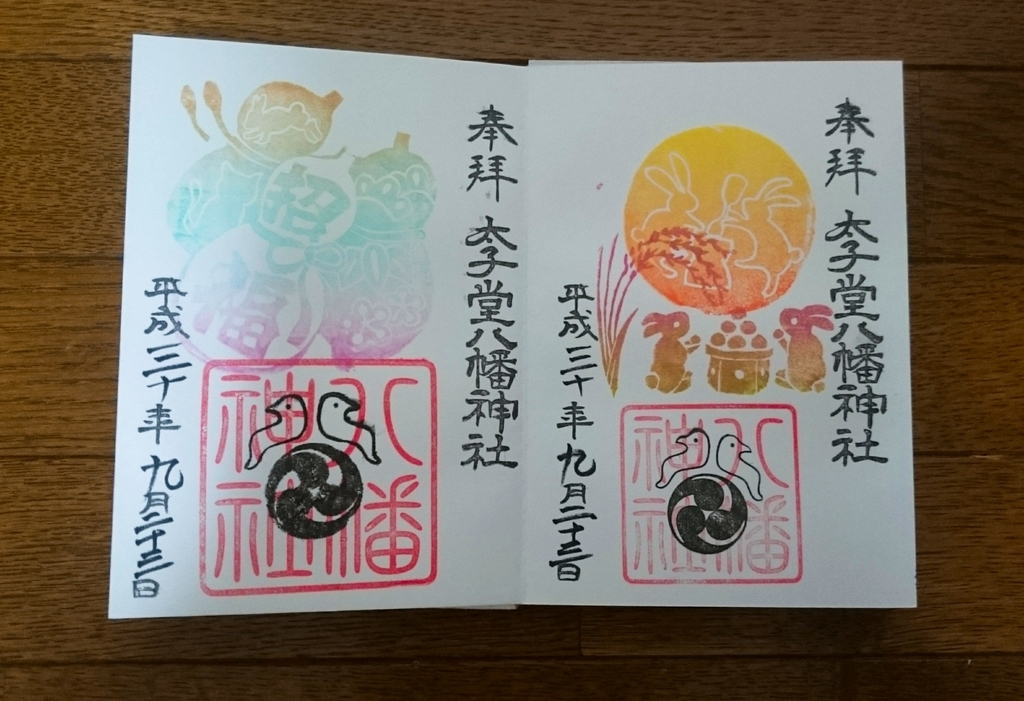 奉拝
太子堂八幡神社
平成三十年九月二十三日
福
八幡神社
奉拝
太子堂八幡神社
平成三十年九月二十三日
八幡神社